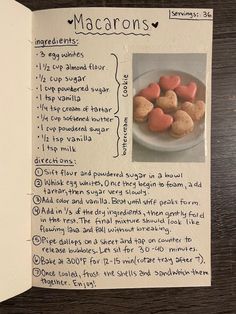 Servings: 36
♥Macarons♥
ingredients:
- 3 egg whites
- 1 1/2 cup almond flour
- 1/2 cup sugar
- 1 cup powdered sugar
- 1 tsp vanilla
- 1/4 tsp cream of tartar
- 1/4 cup softened butter
- 1 cup powdered sugar
- 1/2 tsp vanilla
- 1 tsp milk
cookie
buttercream
directions:
① Sift flour and powdered sugar in a bowl
② Whisk egg whites, Once they begin to foam, add
tartar, then sugar very slowly.
③ Add color and vanilla. Beat until stiff peaks form.
④ Add in 1/3 of the dry ingredients, then gently fold
in the rest. The final mixture should look like
flowing lava and fall without breaking.
⑤ Pipe dallops on a sheet and tap on counter to
release bubbles. Let sit for 30-40 minutes.
⑥ Bake at 300°F for 12-15 min (rotate tray after 7).
⑦ Once cooled, frost the shells and sandwich them
together. Enjoy!